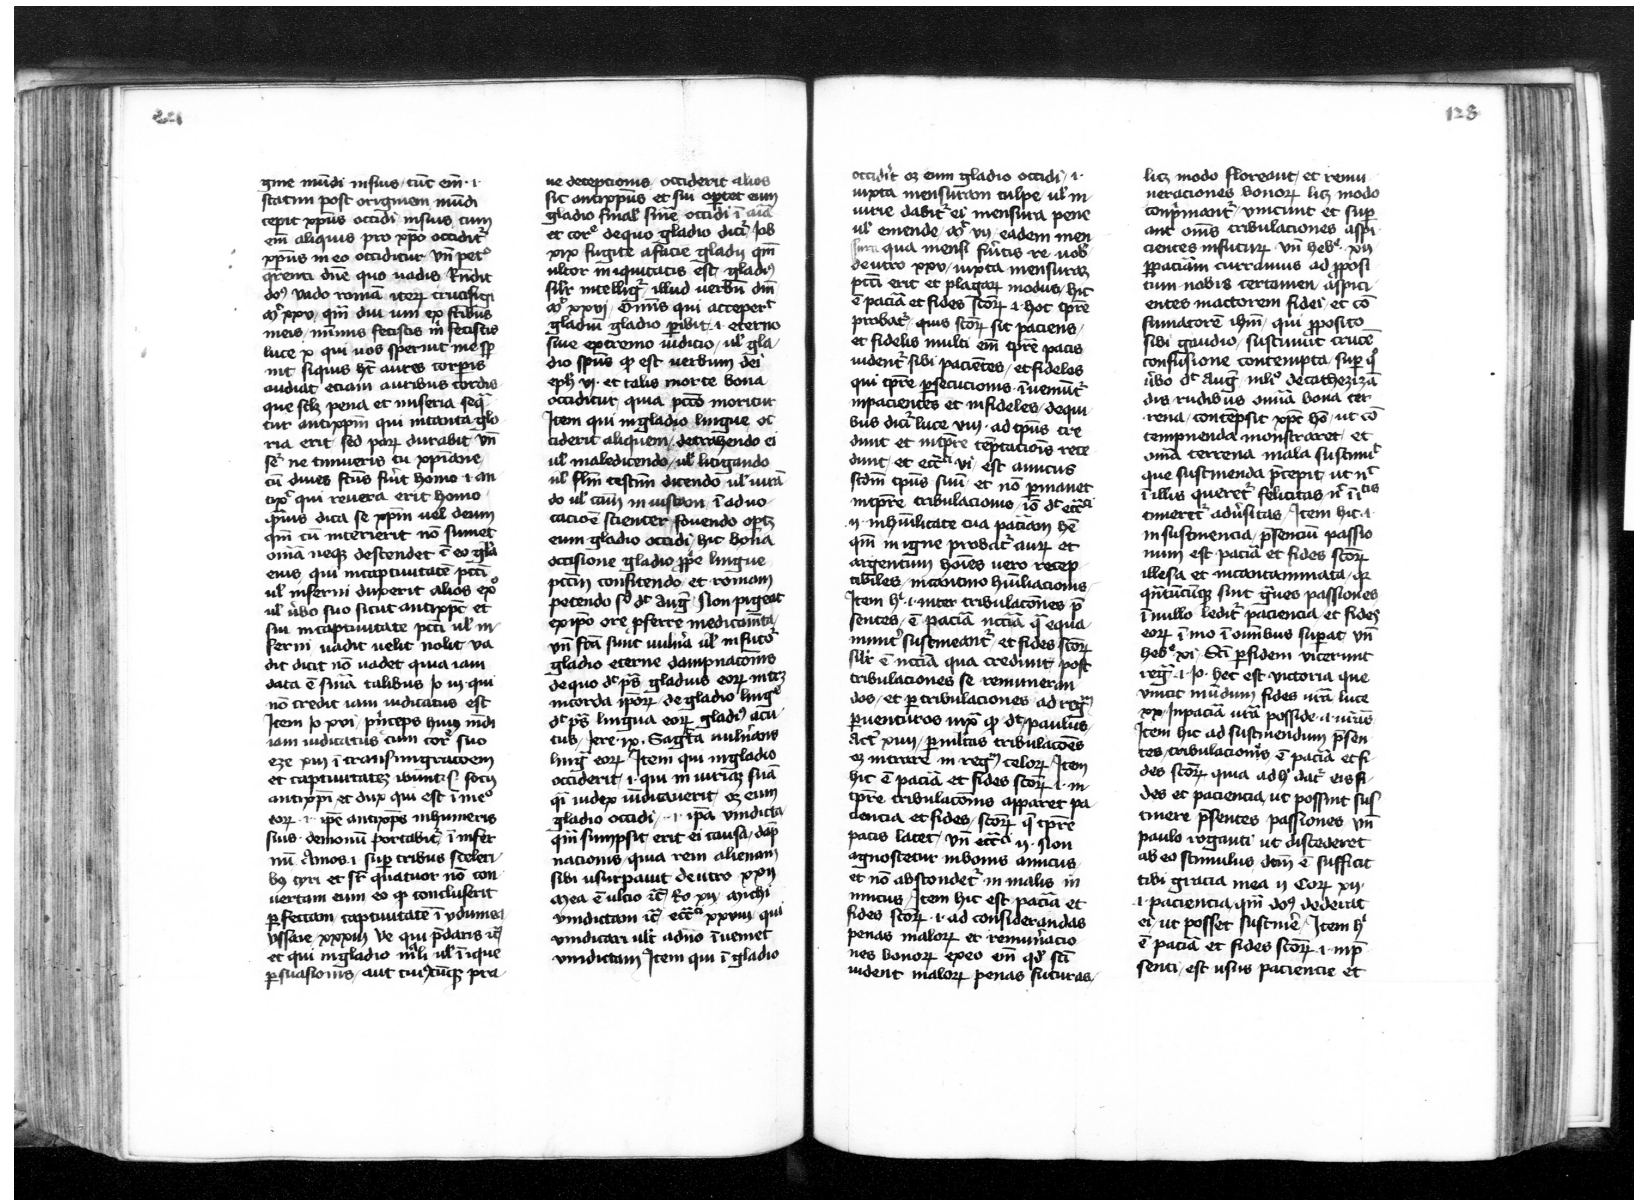 128
gine mūdi insius / tūc em̄ · i ·
statim post originem mūdi
cepit xp̄us occidi insius / cum
em̄ aliquis pro xp̄o occidit᷑
xp̄us in eo occiditur · vn̄ pet᷑
q̄renti dn̄e quo vadis Rn̄dit
do᷑ vado romā iter᷑ crucifigi
mᷓ xxv / qm̄ diu uni ex fr̄ibus
meis / minimis fecistis m̄ fecistis
luce x qui vos spernit me sp̄
nit siquis hȝ aures corp̄is
audiat eciam auribus cordis
que sclȝ pena et miseria seq̄
tur antixpm̄ qui in tanta glo
ria erit sed par᷑ durabit vn̄
ne timueris tu xp̄iane /
cū dives fc̄us fu᷑it homo · i · an
tixp᷑ qui revera erit homo ·
p̄mus dica se xp̄m vel deum
qm̄ cū interierit nō sumet
om̄ia neqȝ descendet ī eo gl̄a
eius / qui in captivitatē pcc̄i
ul᷑ inferni duxerit alios exo
ul᷑ v᷑bo suo sicut antixpc̄ et
sui in captivitate pcc̄i ul᷑ in ·
ferni vadit velit nolit va
dit dicit nō vadet quia iam
data ē sn̄ia talibus jo iij · qui
nō credit iam iudicatus est
Item jo xvi / p᷑nceps huiꝰ mūdi
iam iudicatus cum cor᷑ suo
eze xij ī transmigracōem
et captivitateȝ ibunt
antixp̄i / et dux qui est ī me᷑
eor᷑ · i · ip̄e antixp̄s in humeris
suis · demonū portabit᷑ ī infer
nū Amos · i · sup̄ tribus sceleri
bꝰ tyri et quatuor nō con
vertam eum eo qȝ concluserit
p̄fectam captivitatē ī ydumea
ysaie / xxxiij ve qui p̄daris
et qui in gladio
p̄suasionis / aut
ve deceptionis / occiderit alios
sic antixp̄us et sui oportet eum
gladio finali sine occidi ī aīa
et cor᷑ᵉ de quo gladio dic᷑ Job
xix fugite a facie gladij qm̄
ultor iniquitatis est / gladiꝰ
sil᷑r intelligit᷑ illud verbū dn̄i
mᷓ xxvi / Om̄is qui acceper᷑t
gladiū gladio p̄ibit · i · eterno
sive extremo iudicio / ul᷑ gla /
dio sp̄us qȝ est verbum dei
eph᷑ vj · et talis morte bona
occiditur / quia pcc̄o moritur
Item qui in gladio lingue oc
ciderit aliquem / detrahendo ei
ul᷑ maledicendo / ul᷑ litigando
ul᷑ flm̄ testm̄ dicendo / ul᷑ iurā
do ul᷑ cām in iustam / ī advo
cacioē scienter / fovendo op̄tȝ
eum gladio occidi / hic bona
occisione gladio p̄pe lingue
pcc̄m confitendo / et romam
petendo dc᷑ aug᷑ / Non pigeat
ex ip̄o ore p̄ferre medicam̄ta /
vn̄ fc̄a sunt vuln᷑a
gladio eterne dampnacōnis
de quo dc᷑ ps̄ gladius eor᷑ intrȝ
in corda ip̄or᷑ / de gladio ling᷑ᵉ
dc᷑ ps̄ lingua eor᷑ gladiꝰ acu
tus / Jere · ix · Sagᷓta vuln᷑ans
ling᷑ eor᷑ Item qui in gladio
occiderit / · i · qui in iuriaȝ suā
qī iudex iudicaverit / oȝ eum
gladio occidi / · i · ip̄a vindicta
qm̄ sumpsit erit ei causa / dāp
nacionis / quia rem alienam
sibi usurpavit deutro xxxij
Mea ē ultio Ro xij Michi
vindictam ecc᷑i xxviij qui
vindicari ult᷑ a dn̄o ī veniet
vindictam Item qui ī gladio
128
occidit oȝ eum gladio occidi / · i ·
iuxta mensuram culpe / ul᷑ in
iurie dabit᷑ ei mensura pene
ul᷑ emende / mᷓ vij / eadem men
sura qua mensi fu᷑itis re · vob᷑
deutro xxv / iuxta mensuraȝ
pcc̄i erit et plagar᷑ modus / hic
ē paciā et fides sc̄or᷑ · i · hoc tp̄re
probat᷑ / quis sc̄or᷑ sit paciens /
et fidelis multi em̄ tp̄re pacis
vident᷑ sibi pacientes / et fideles
qui tp̄re p̄secucionis · ī veniūt᷑
inpacientes et infideles / de qui
bus dic᷑ luce viij · ad tp̄us cre
dunt et in tp̄re teptacionis rece
dunt / et ecc᷑i vi / est amicus
scdm̄ tp̄us suū / et nō p̄manet
in tp̄re tribulacionis / iō dc᷑ ecc᷑i
ij · in humilitate tua paciām hē
qm̄ in igne probat᷑ aur᷑ et
argentum / hoīes vero recep ·
tibiles / in camino humiliacionis /
Item h᷑ · i · inter tribulacōnes p̄
sentes / ē paciā
sustineant᷑ / et fides sc̄or᷑
sil᷑r ē qua credūnt post
tribulaciones se remuneran
dos / et p̄ tribulaciones / ad reg᷑
p̄venturos in xp̄ qȝ dc᷑ paulus
Act᷑ xiiij / p̄ multas tribulacōes
oȝ intrare in reg᷑ celor᷑ Item
hic ē paciā et fides sc̄or᷑ · i · in
tp̄re tribulacōnis apparet pa
ciencia et fides / sc̄or᷑ tp̄re
pacis latet / vn̄ ecc᷑i ij · Non
agnoscetur in bonis amicus /
et nō abscondet᷑ in malis in
imicus / Item hic est paciā et
fides sc̄or᷑ · i · ad considerandas
penas malor᷑ et remun᷑acio
nes bonor᷑ exeo em̄ qd᷑ sc̄i
vident malor᷑ penas futuras /
licȝ modo floreant / et remu
neraciones bonor᷑ licȝ modo
conp᷑mant᷑ / vincunt et sup̄
ant om̄s tribulaciones aspi
cientes in futur᷑ / vn̄ heb᷑ᵉ · xij
p̄ paciām curramus ad p̄posi
tum nobis certamen / aspici
entes in actorem fidei / et cō
sumatorē ihm̄ / qui p̄posito
sibi gaudio / sustinuit crucē
confusione contempta / sup̄ qȝ
v᷑bo dc᷑ aug᷑ in li᷑ de cathezizā
dis rudibus om̄ia bona ter
rena / contēpsit xp̄c ho᷑ / ut cō
tempnenda monstraret / et
om̄ia terrena mala sustinu᷑t
que sustinenda p̄cepit / ut
ī illis queret᷑ felicitas
timeret᷑ adv᷑sitas / Item hic · i ·
in sustinencia / p̄senciū passio
num est paciā et fides sc̄or᷑
illesa et incontaminata / qȝ
qn̄tūcūqȝ sint g᷑ves passiones
ī nullo ledit᷑ paciencia et fides
eor᷑ ī mo ī omnibus sup̄at vn̄
heb᷑ᵉ xi / Sc̄i p̄ fidem vicerunt
reg᷑ · i · jo · hec est victoria que
vincit mūdum fides vr̄a luce
xxj In paciā vr̄a posside · a · vr̄as
Item hic ad sustinendum p̄sen
tes / tribulacionˀs / ē paciā et fi ·
des sc̄or᷑ quia ad h᷑ dat᷑ eis fi ·
des et paciencia / ut possint sus
tinere p̄sentes passiones vn̄
paulo roganti ut discederet
ab eo stimulus / dcm̄ ē sufficit
tibi gracia mea ij Cor᷑ xij ·
· i · paciencia / qm̄ doꝰ dederat
ei / ut posset sustin᷑e / Item h᷑
ē paciā et fides sc̄or᷑ · i · in p̄
senti / est usus paciencie et